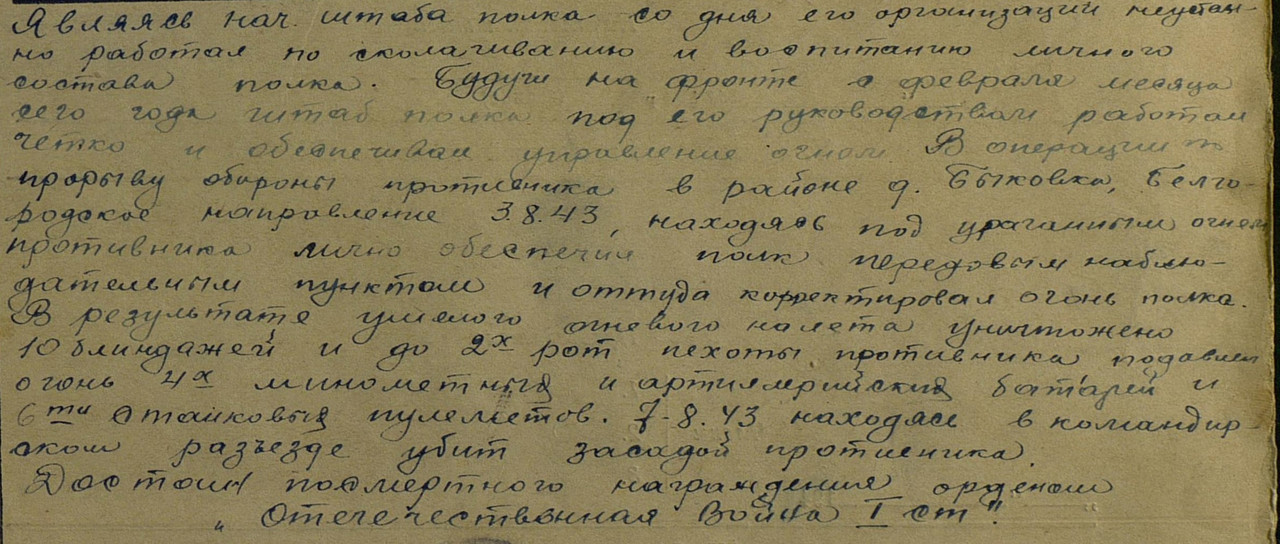 Являясь нач. штаба полка со дня его организации неустан-
но работал по сколачиванию и воспитанию личного
состава полка. Будучи на фронте с февраля месяца
сего года штаб полка под его руководством работал
четко и обеспечивал управление огнем. В операции по
прорыву обороны противника в районе д. Быковка, Белго-
родское направление 3.8.43, находясь под ураганным огнем
противника лично обеспечил полк передовым наблю-
дательным пунктом и оттуда корректировал огонь полка.
В результате умелого огневого налета уничтожено
10 блиндажей и до 2х рот пехоты противника подавлен
огонь 4х минометных и артиллерийских батарей и
6ти станковых пулеметов. 7.8.43 находясь в командир-
ском разъезде убит засадой противника.
Достоин посмертного награждения орденом
„Отечественная Война I ст".